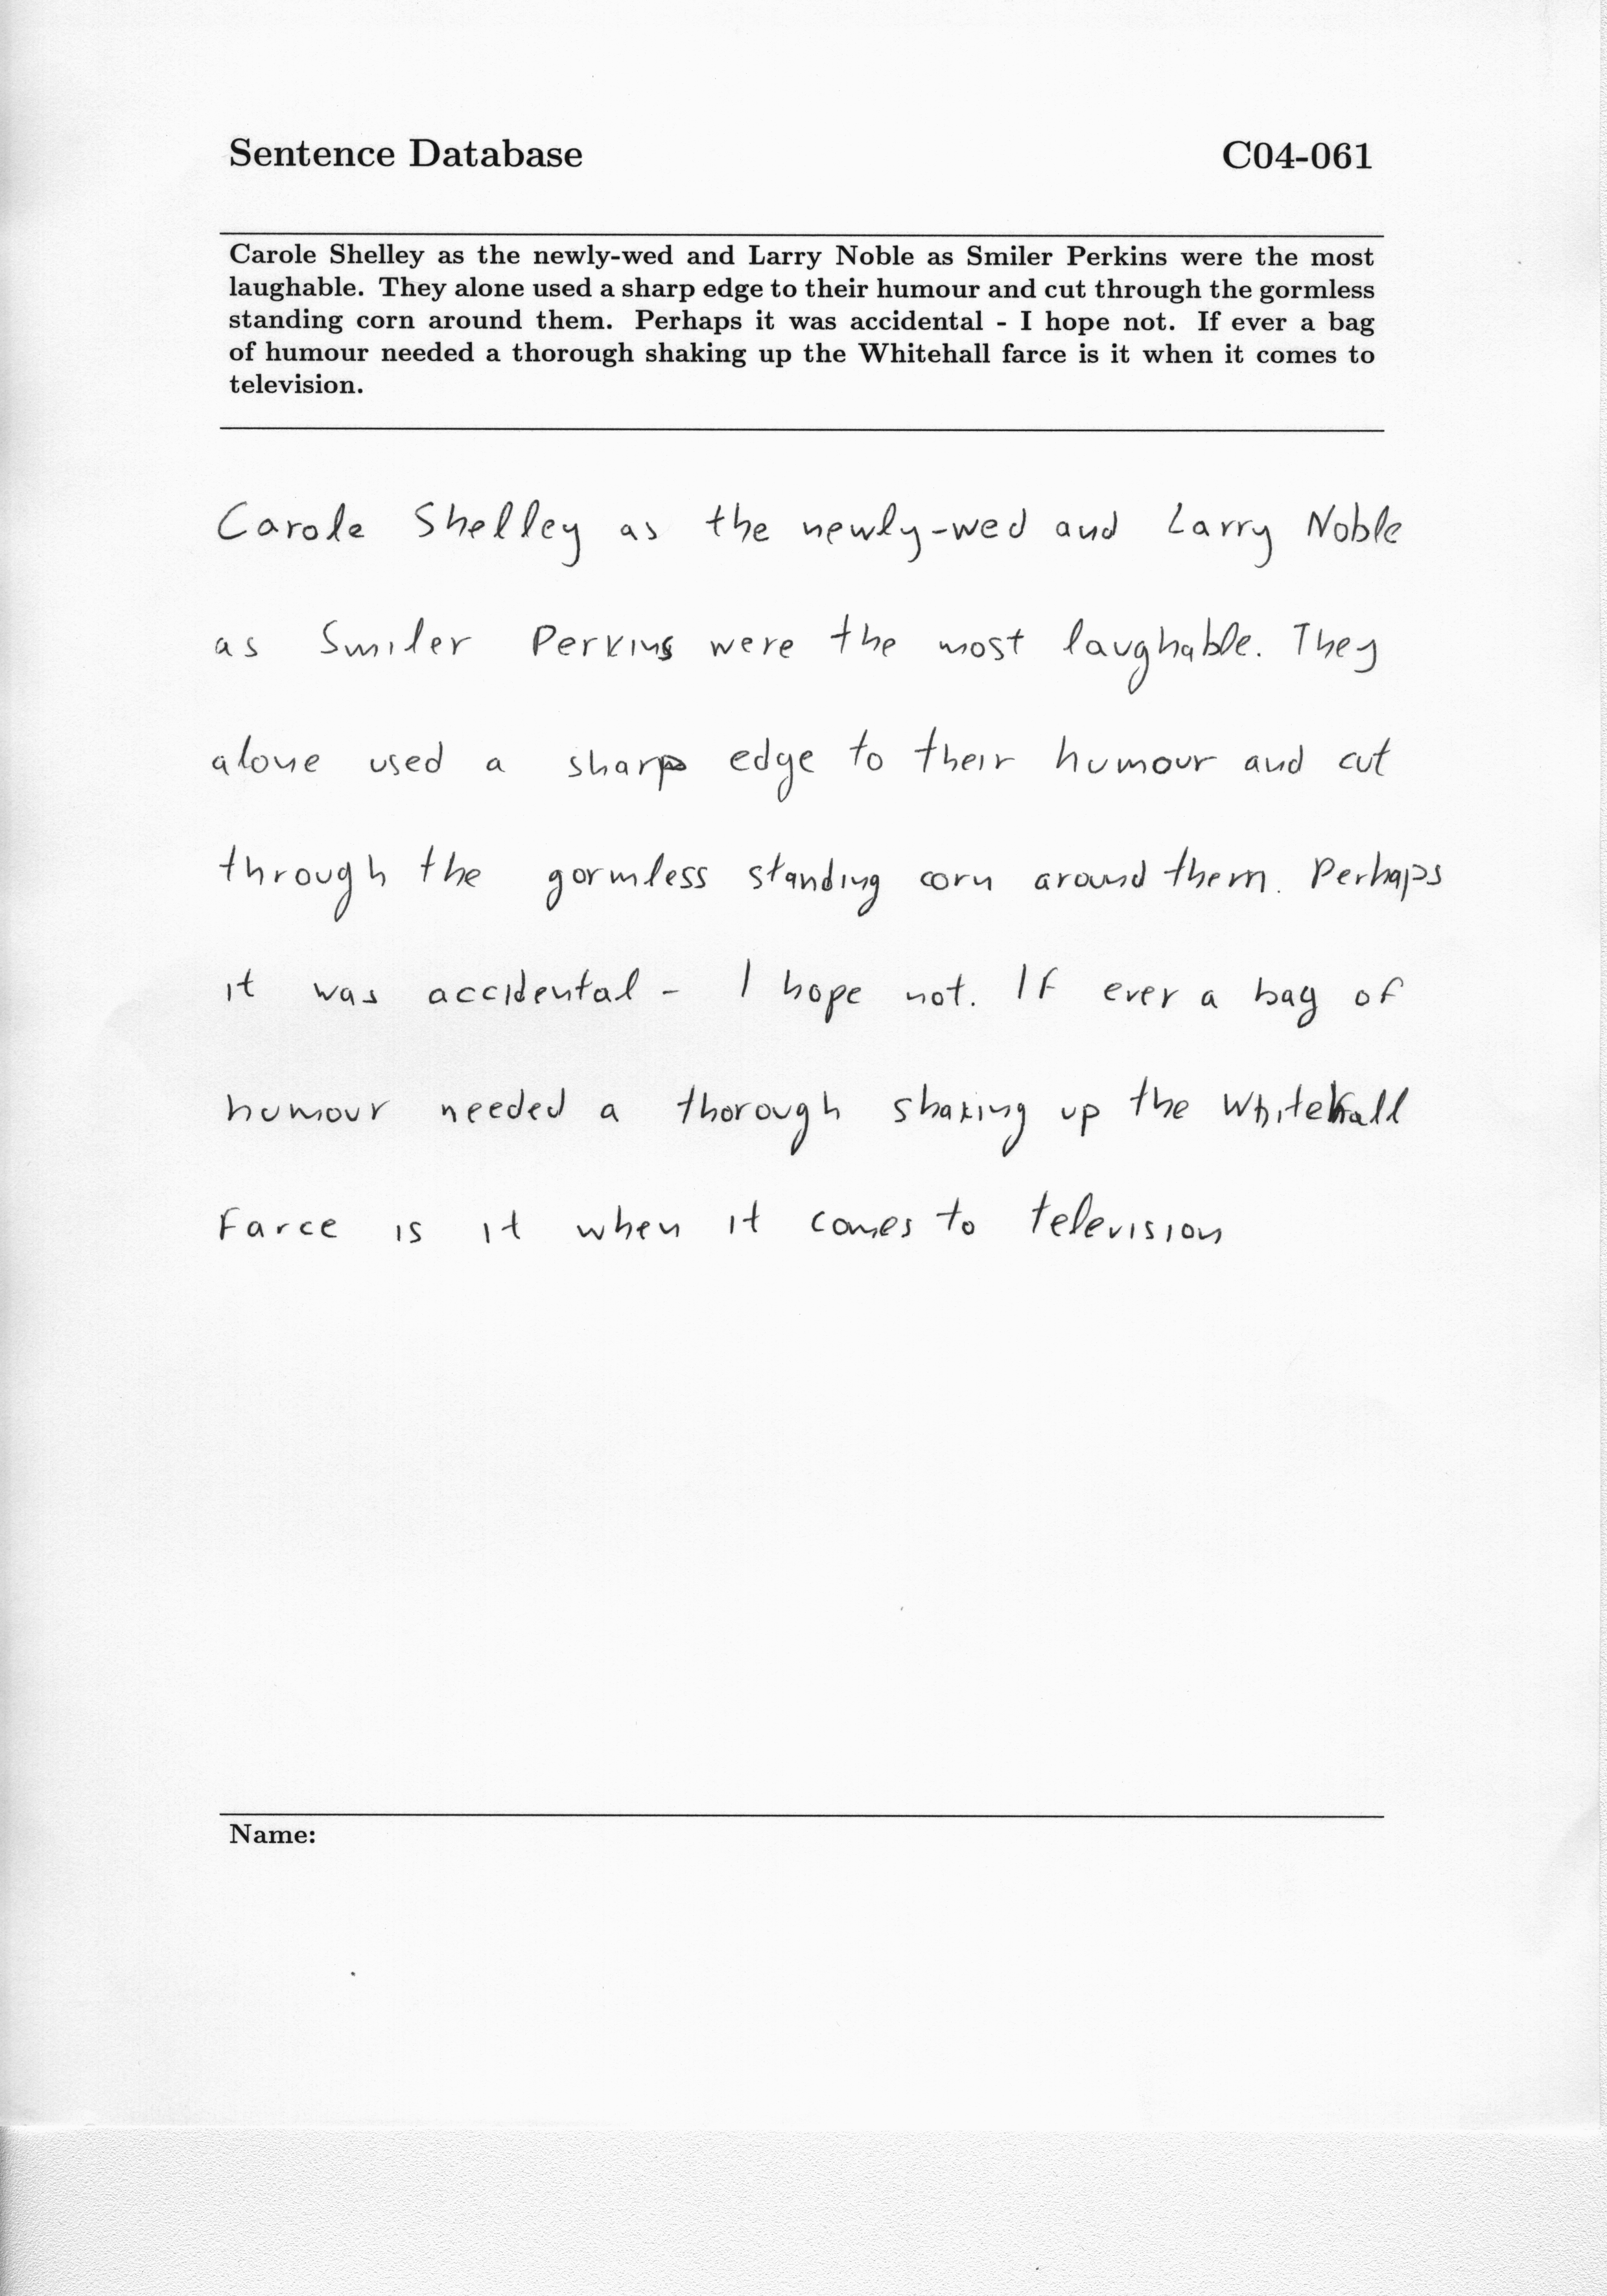 Sentence Database C04-061
Carole Shelley as the newly-wed and Larry Noble as Smiler Perkins were the most
laughable. They alone used a sharp edge to their humour and cut through the gormless
standing corn around them. Perhaps it was accidental - I hope not. If ever a bag
of humour needed a thorough shaking up the Whitehall farce is it when it comes to
television.
Carole Shelley as the newly-wed and Larry Noble
as Smiler Perkins were the most laughable. They
alone used a sharp edge to their humour and cut
through the gormless standing corn around them. Perhaps
it was accidental - I hope not. If ever a bag of
humour needed a thorough shaking up the Whitehall
Farce is it when it comes to television
Name: